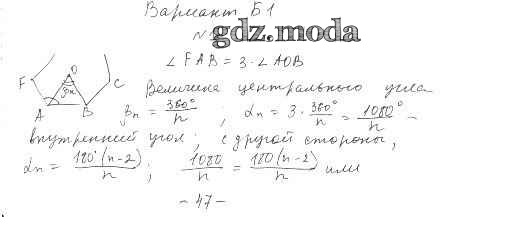 Вариант Б1
N
gdz.moda
∠ FAB = 3 · ∠ AOB
O
F
βn
C
A
B
Величина центрального угла
βn = 360°/n ; αn = 3 · 360°/n = 1080°/n –
внутренний угол; с другой стороны,
αn = 180°(n-2)/n ; 1080/n = 180(n-2)/n или
- 47 -